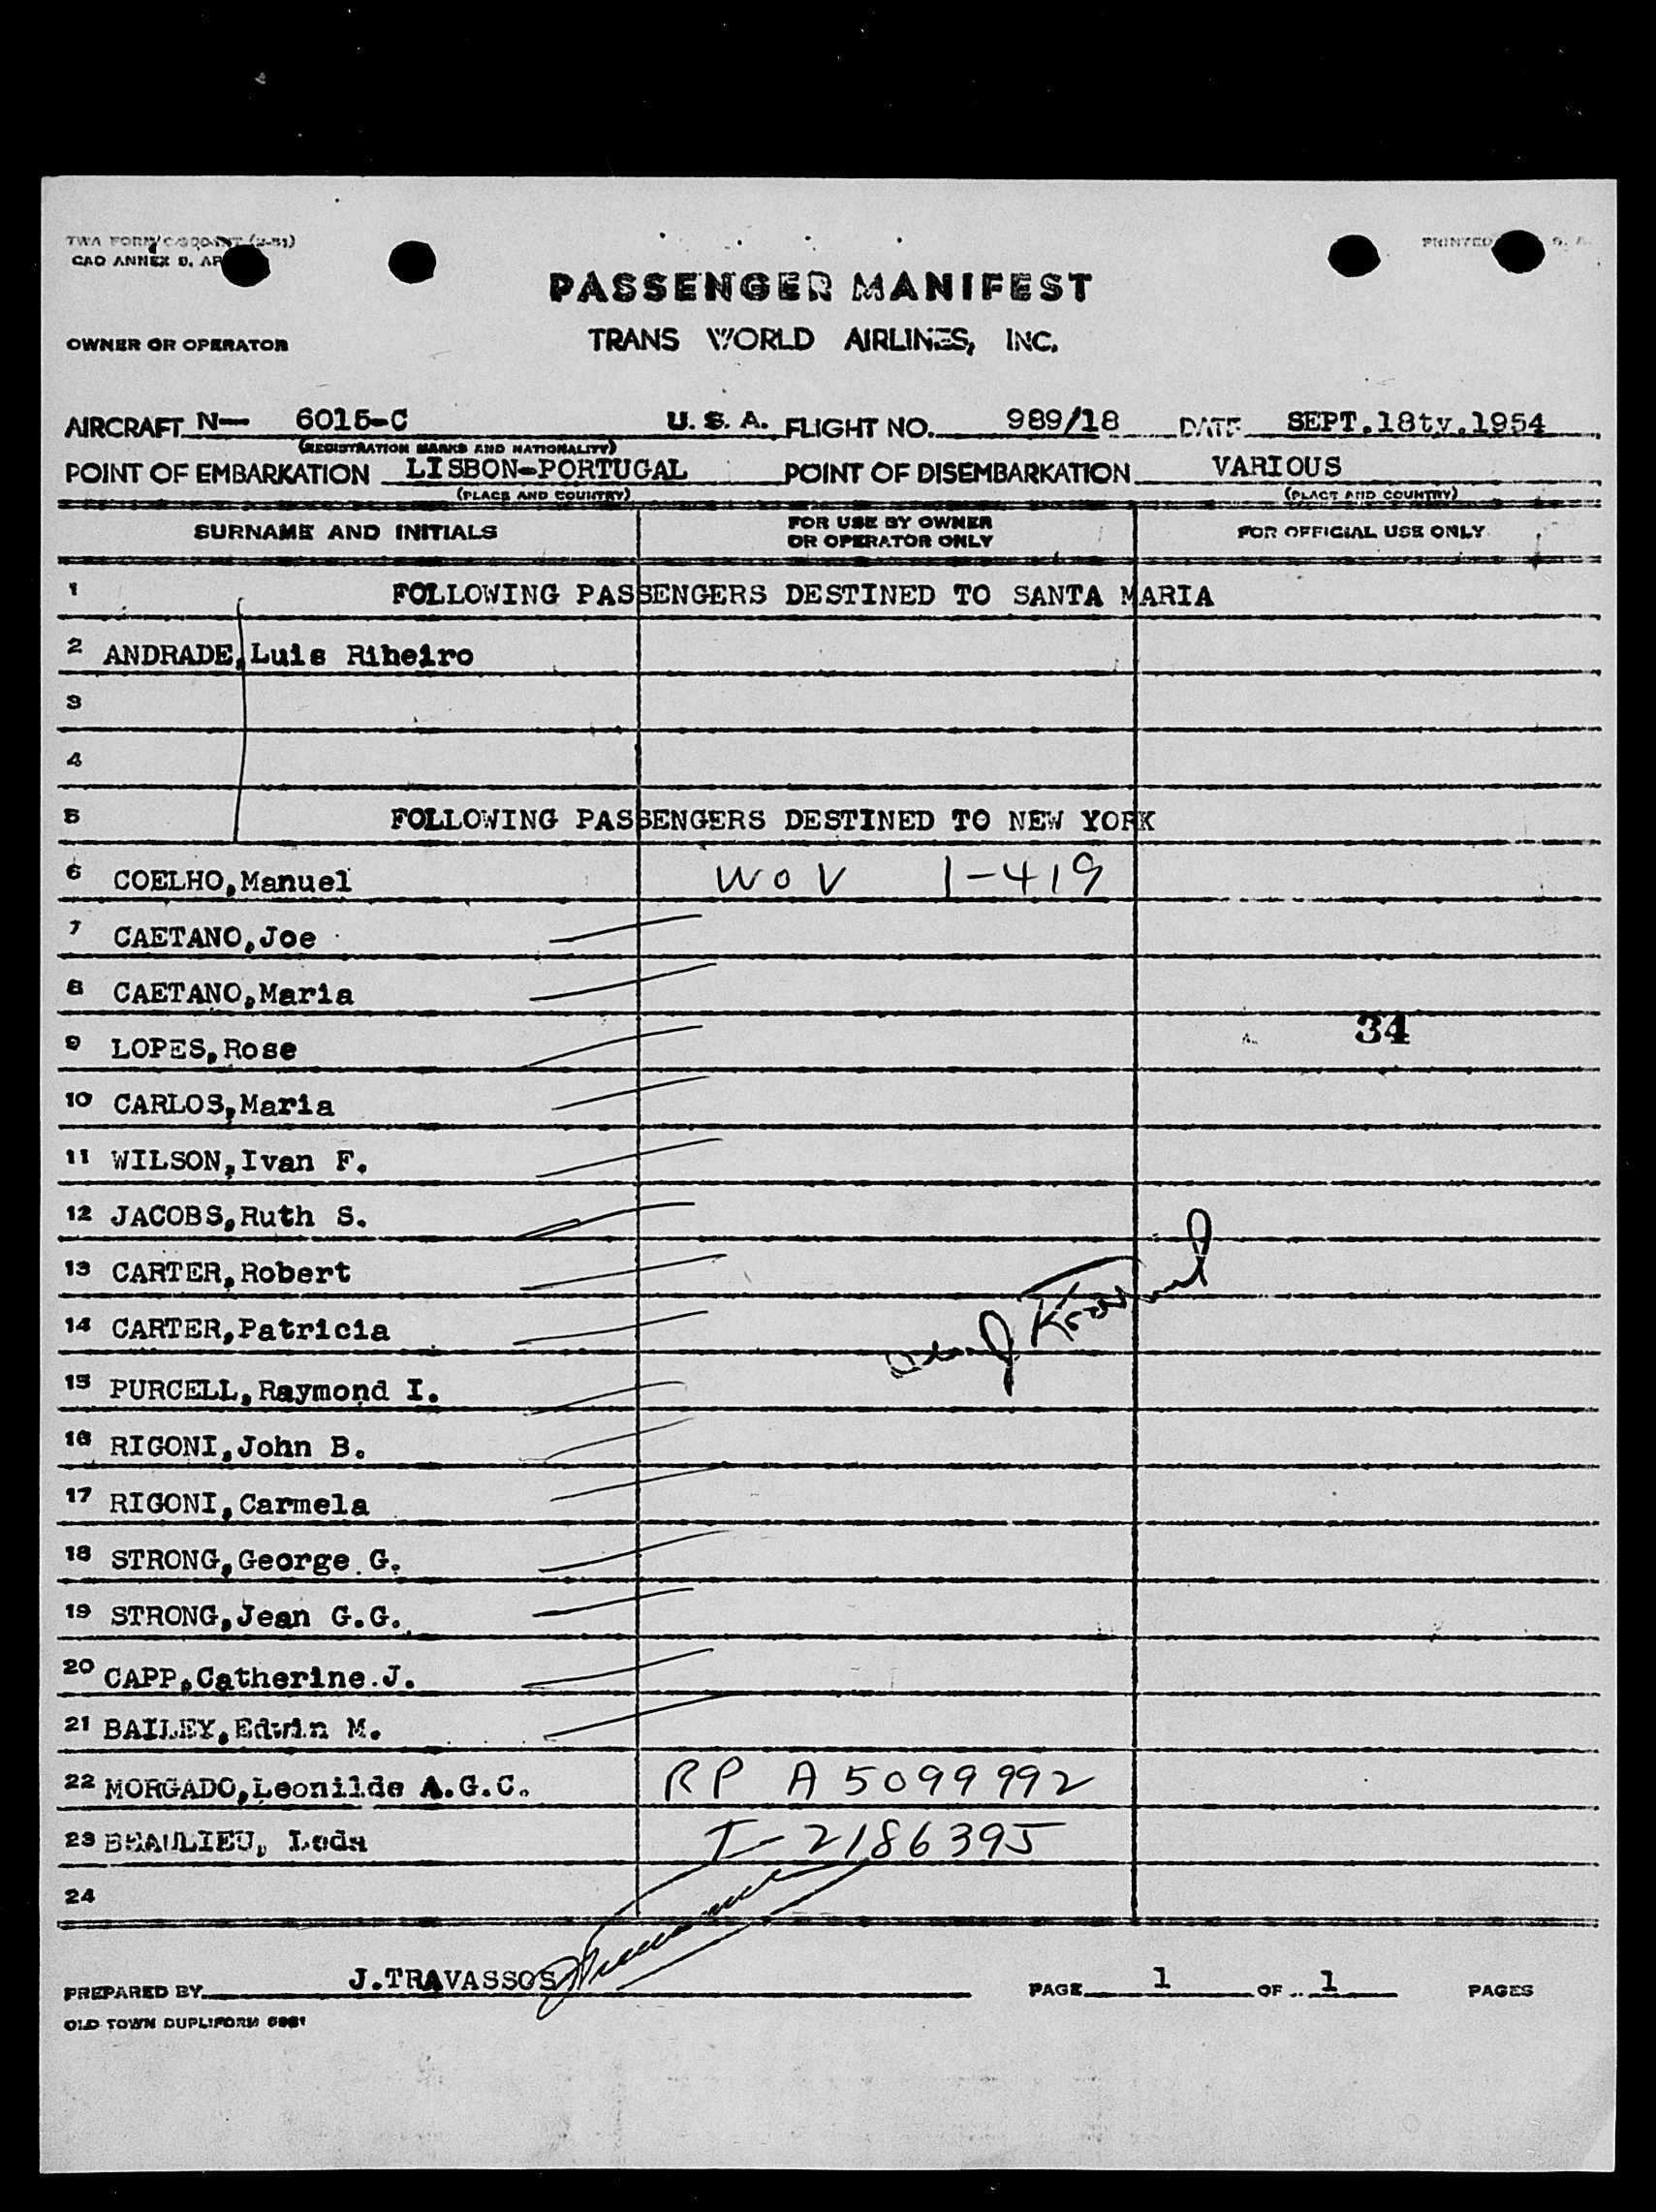 TWA FORM
CAO ANNEX 9, AR
PRINTED
PASSENGER MANIFEST
OWNER OR OPERATOR TRANS WORLD AIRLINES, INC.
AIRCRAFT N- 6015-C U. S. A. FLIGHT NO. 989/18 DATE SEPT.18ty.1954
(REGISTRATION MARKS AND NATIONALITY)
POINT OF EMBARKATION LISBON-PORTUGAL POINT OF DISEMBARKATION VARIOUS
(PLACE AND COUNTRY) (PLACE AND COUNTRY)
SURNAME AND INITIALS FOR USE BY OWNER OR OPERATOR ONLY FOR OFFICIAL USE ONLY
1 FOLLOWING PASSENGERS DESTINED TO SANTA MARIA
2 ANDRADE,Luis Ribeiro
3
4
5 FOLLOWING PASSENGERS DESTINED TO NEW YORK
6 COELHO,Manuel WOV 1-419
7 CAETANO,Joe
8 CAETANO,Maria
9 LOPES,Rose 34
10 CARLOS,Maria
11 WILSON,Ivan F.
12 JACOBS,Ruth S.
13 CARTER,Robert
14 CARTER,Patricia
15 PURCELL,Raymond I.
16 RIGONI,John B.
17 RIGONI,Carmela
18 STRONG,George G.
19 STRONG,Jean G.G.
20 CAPP,Catherine J.
21 BAILEY,Edwin M.
22 MORGADO,Leonilde A.G.C. RP A5099992
23 BEAULIEU, Leda I-2186395
24
PREPARED BY J.TRAVASSOS PAGE 1 OF 1 PAGES
OLD TOWN DUPLIFORM